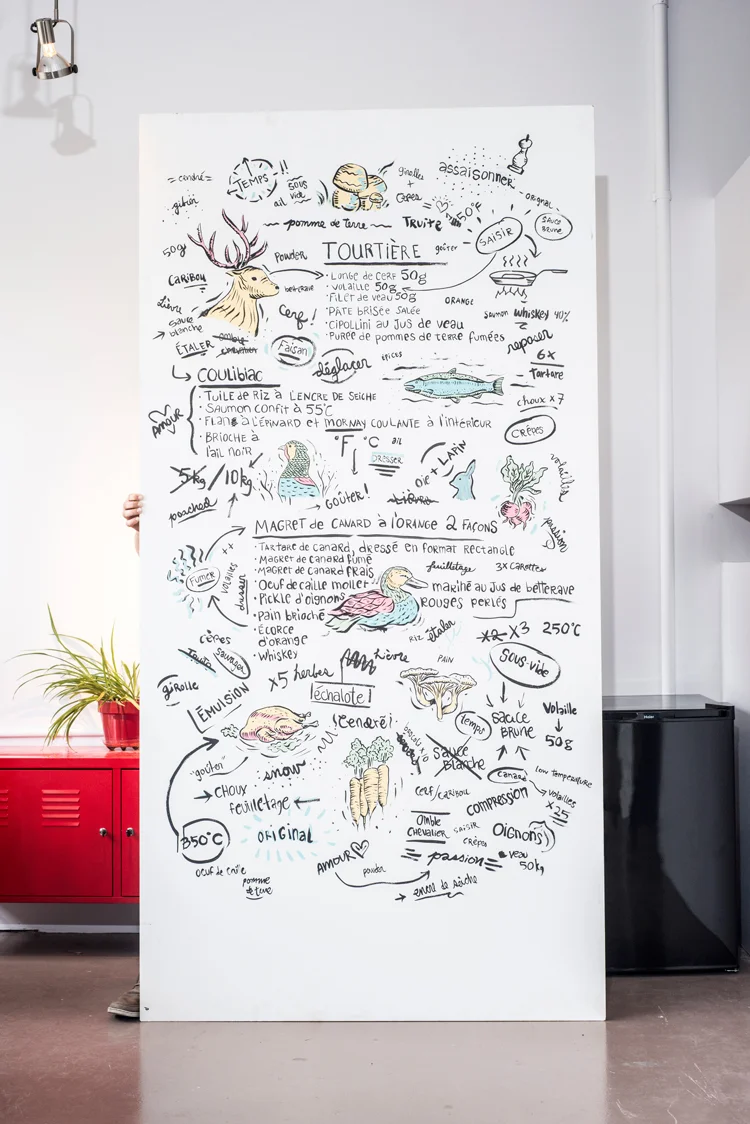 = cendré =
TEMPS !!
ail
SOUS
vide
girolles
+
Cèpes
assaisonner
gibier
50°F
original
SAUCE
BRUNE
~ pomme de terre ~
TRUITE
goûter
SAISIR
50g
Powder
TOURTIÈRE
CARIBOU
betterave
· Longe de CERF 50g
· VOLAILLE 50g
· FILET de veau 50g
· PÂTE BRISÉE SALÉE
· CIPOLLINI au JUS de veau
· PURÉE DE POMMES DE TERRE FUMÉES
ORANGE
Lièvre
sauce
blanche
Cerf!
saumon whiskey 40%
reposer
ÉTALER
omble
chevalier
Faisan
déglacer
épices
6x
Tartare
COULIBIAC
choux x7
· TUILE de RIZ À L'ENCRE DE SEICHE
· SAUMON CONFIT À 55°C
· FLANC à L'ÉRNARD et MORNAY COULANTE à l'intérieur
· BRIOCHE à
l'ail noir
AMOUR
CRÊPES
°F °C
ail
DRESSER
OIE + LAPIN
volailles
5kg / 10kg
poached
GOÛTER!
LIÈVRE
passion
MAGRET de CANARD à l'ORANGE 2 FAÇONS
· TARTARE de CANARD, dRESSÉ en format RECTANGLE
· MAGRET de CANARD fumé
· MAGRET de CANARD FRAIS
· Oeuf de caille mollet
· Pickle d'oignons
· PAIN BRIOCHÉ
· ÉCORCE
d'ORANGE
· WHISKEY
++
FUMER
VOLAILLES
dresser
feuilletage
3X CAROTTES
mariné au Jus de betterave
ROUGES PERLÉS
RIZ
étaler
x2 X3
250°C
CÈPES
Truite
sauvage
x5 herbes
Lièvre
PAIN
SOUS-vide
girolle
échalote!
ÉMULSION
!Cendré!
temps
SAUCE
BRUNE
Volaille
50g
"goûter"
snow
Sauce
Blanche
canard
low temperature
volailles
x25
→ CHOUX
feuilletage ←
CERF/CARIBOU
compression
350°C
ORIGINAL
OMBLE
CHEVALIER
SAISIR
Crêpes
Oignons
veau
50kg
AMOUR
= passion =
powder
oeuf de caille
pomme
de terre
→ encre de sèche